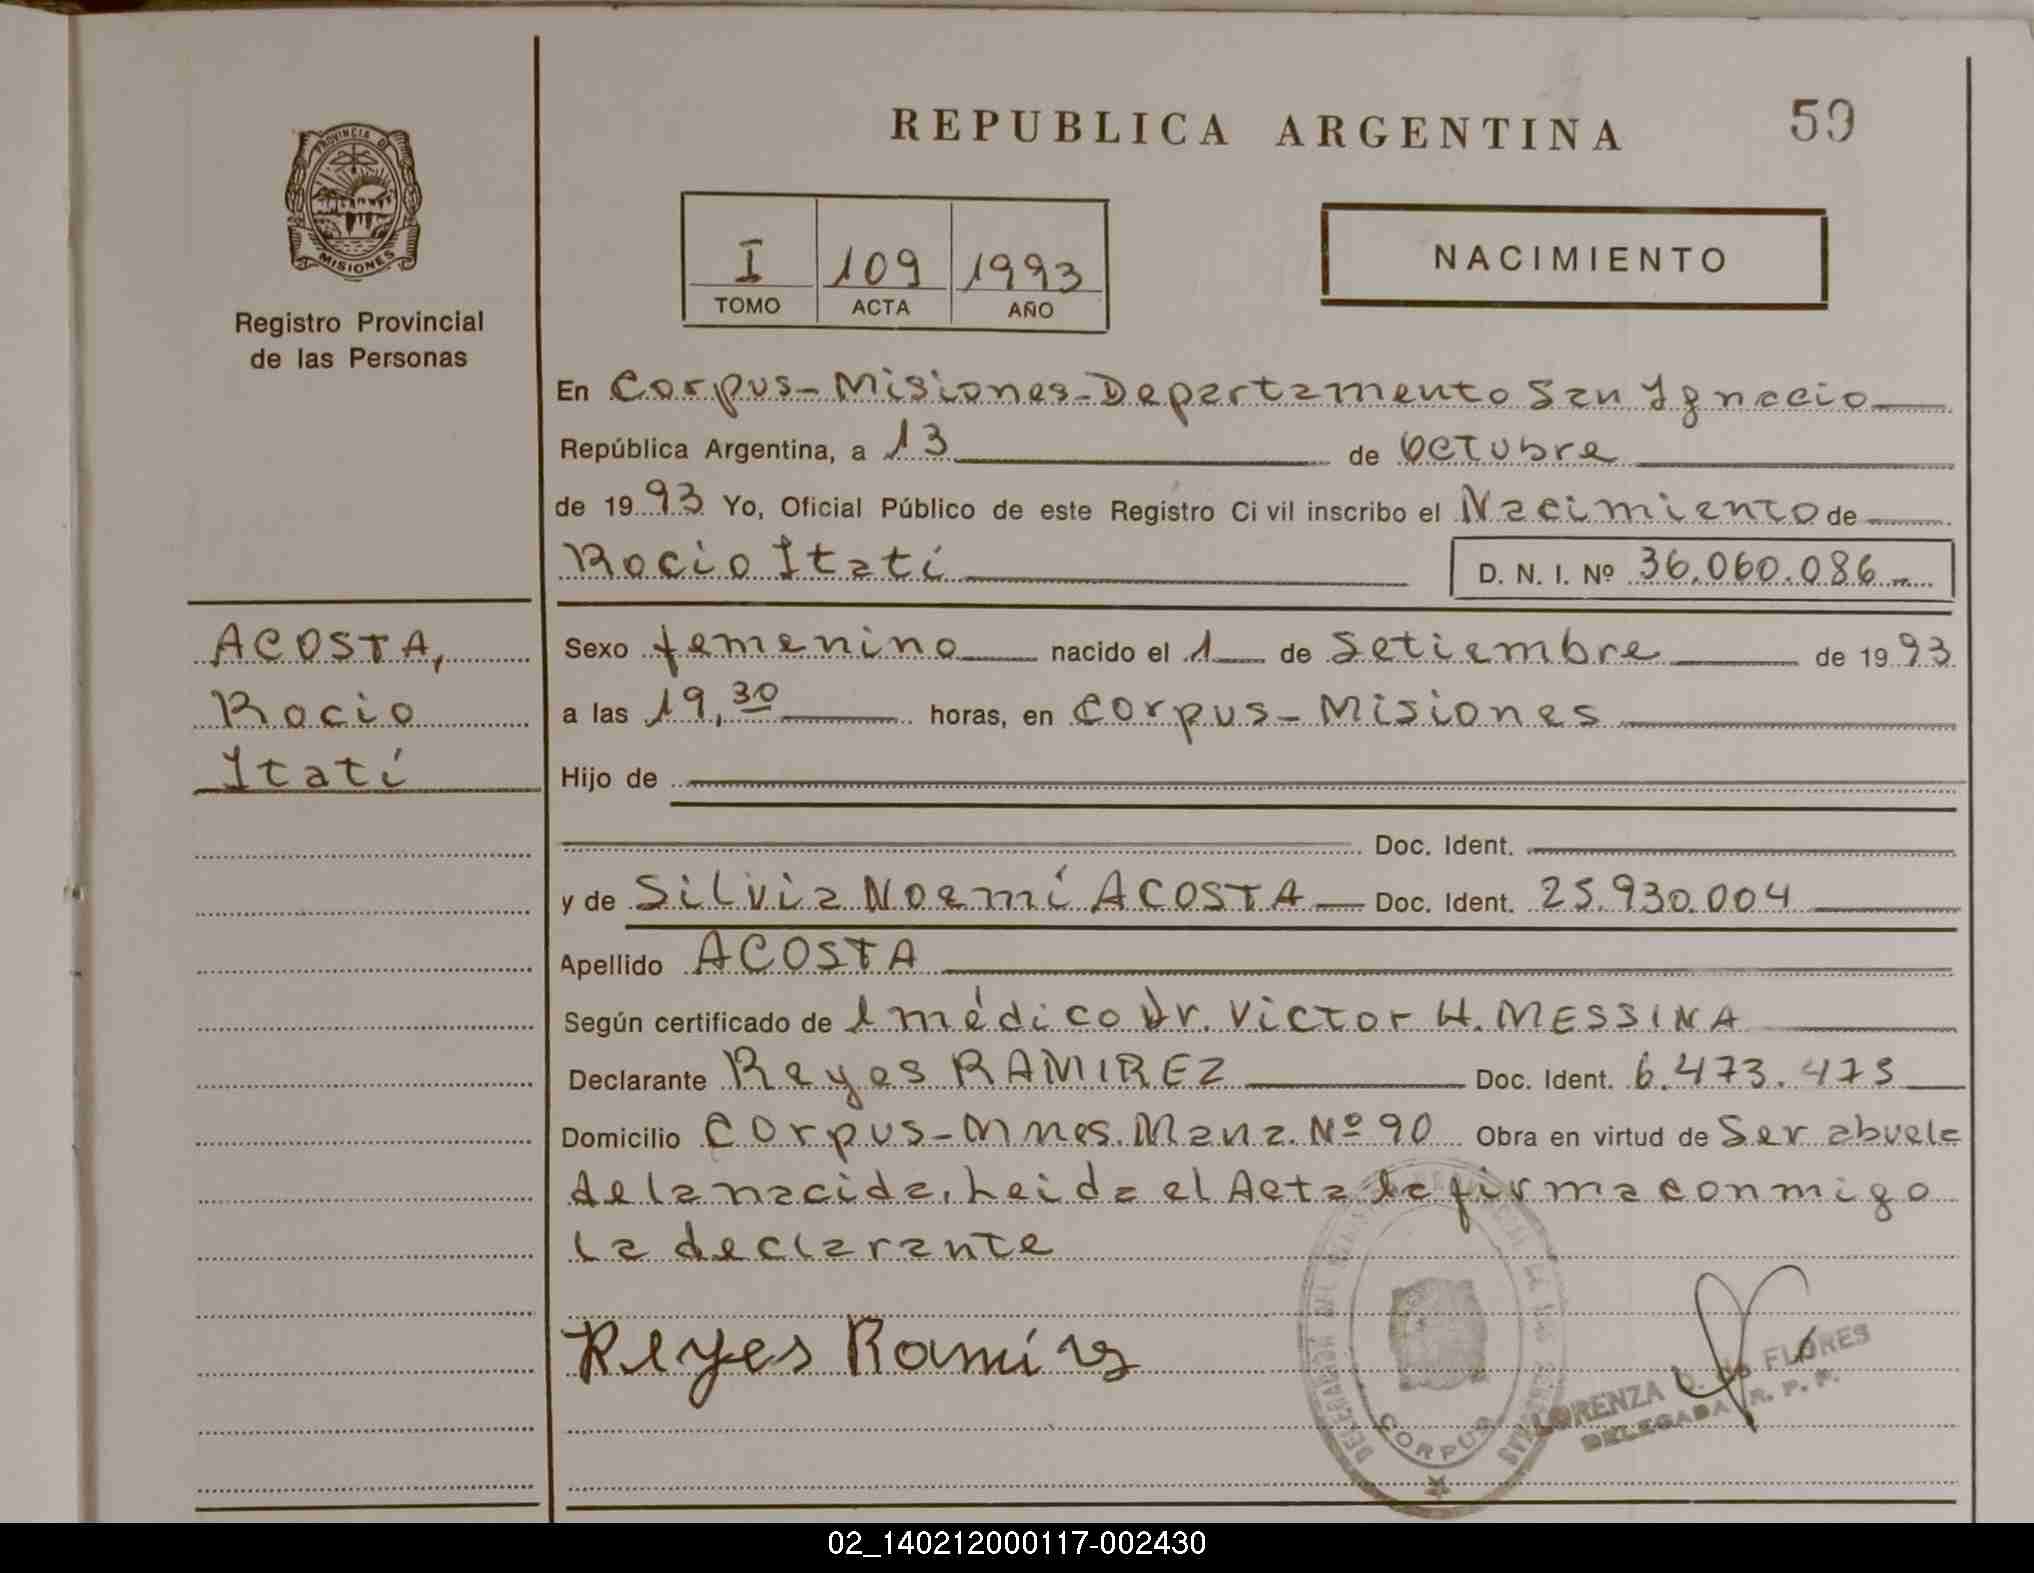 REPUBLICA ARGENTINA
59
PROVINCIA DE
MISIONES
Registro Provincial
de las Personas
I 109 1993
TOMO ACTA AÑO
NACIMIENTO
En Corpus-Misiones-Departamento San Ignacio
República Argentina, a 13 de Octubre
de 1993 Yo, Oficial Público de este Registro Civil inscribo el Nacimiento de
Rocio Itatí D. N. I. Nº 36.060.086
ACOSTA,
Rocio
Itatí
Sexo femenino nacido el 1 de Setiembre de 1993
a las 19,30 horas, en Corpus-Misiones
Hijo de
Doc. Ident.
y de Silvia Noemí ACOSTA Doc. Ident. 25.930.004
Apellido ACOSTA
Según certificado de l médico Dr. Victor H. MESSINA
Declarante Reyes RAMIREZ Doc. Ident. 6.473.473
Domicilio Corpus-Mnes. Manz. Nº 90 Obra en virtud de Ser abuela
de la nacida. Leida el Acta la firma conmigo
la declarante
Reyes Ramírez
CORPUS
LORENZA D. de FLORES
DELEGADA R. P. P.
02_140212000117-002430